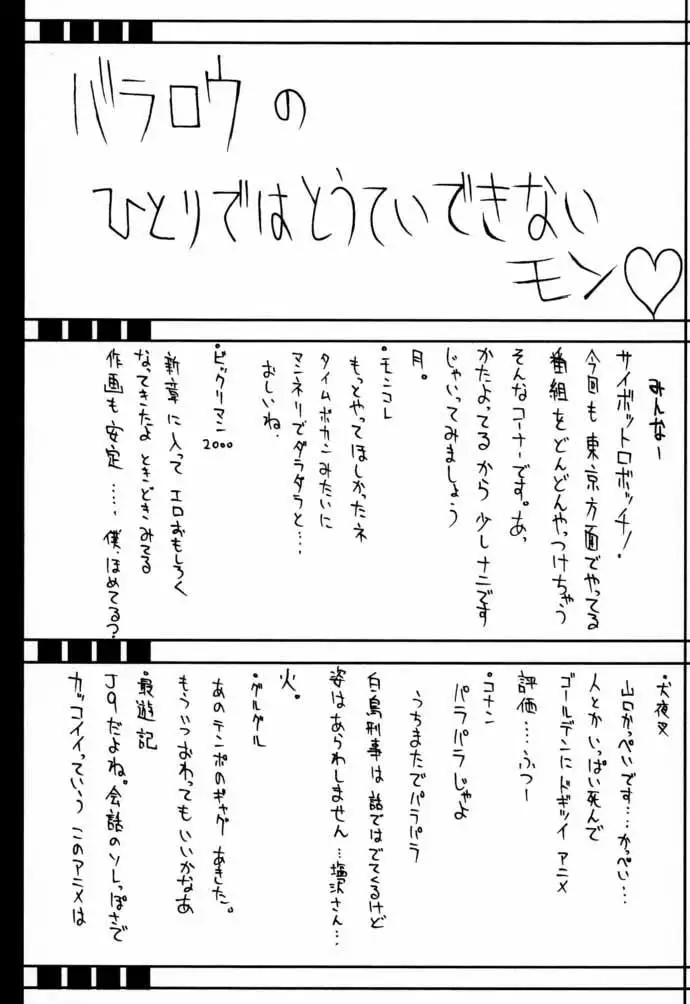 バラロウの
ひとりではとうていできない
モン♡
みんなー
サイボットロボッチ!
今回も東京方面でやってる
番組をどんどんやっつけちゃう
そんなコーナーです。あっ
かたよってるから少しナニです
じゃいってみましょう
月。
・モンコレ
もっとやってほしかったネ
タイムボカンみたいに
マンネリでダラダラと…
おしいね.
・ビックリマン2000
新章に入ってエロおもしろく
なってきたよ ときどきみてる
作画も安定……僕、ほめてる?
・犬夜叉
山口かっぺいです…かっぺい…
人とかいっぱい死んで
ゴールデンにドギツイアニメ
評価……ふつー
・コナン
パラパラじゃよ
うちまたでパラパラ
白鳥刑事は話ではでてくるけど
姿はあらわしません…塩沢さん…
火。
・グルグル
あのテンポのギャグあきた。
もういつおわってもいいかなあ
・最遊記
J9だよね。会話のソレっぽさで
カッコイイっていうこのアニメは